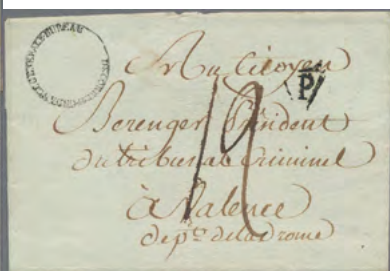 Au Citoyen
P
Berenger Président
du tribunal Criminel
12
à Valence
dep.t de la drome